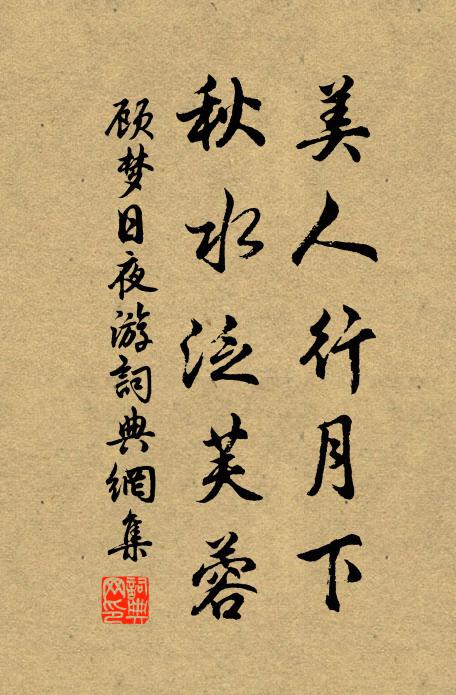 美人行月下
秋水泛芙蓉
顾梦日夜游詞典網集
詞典網印